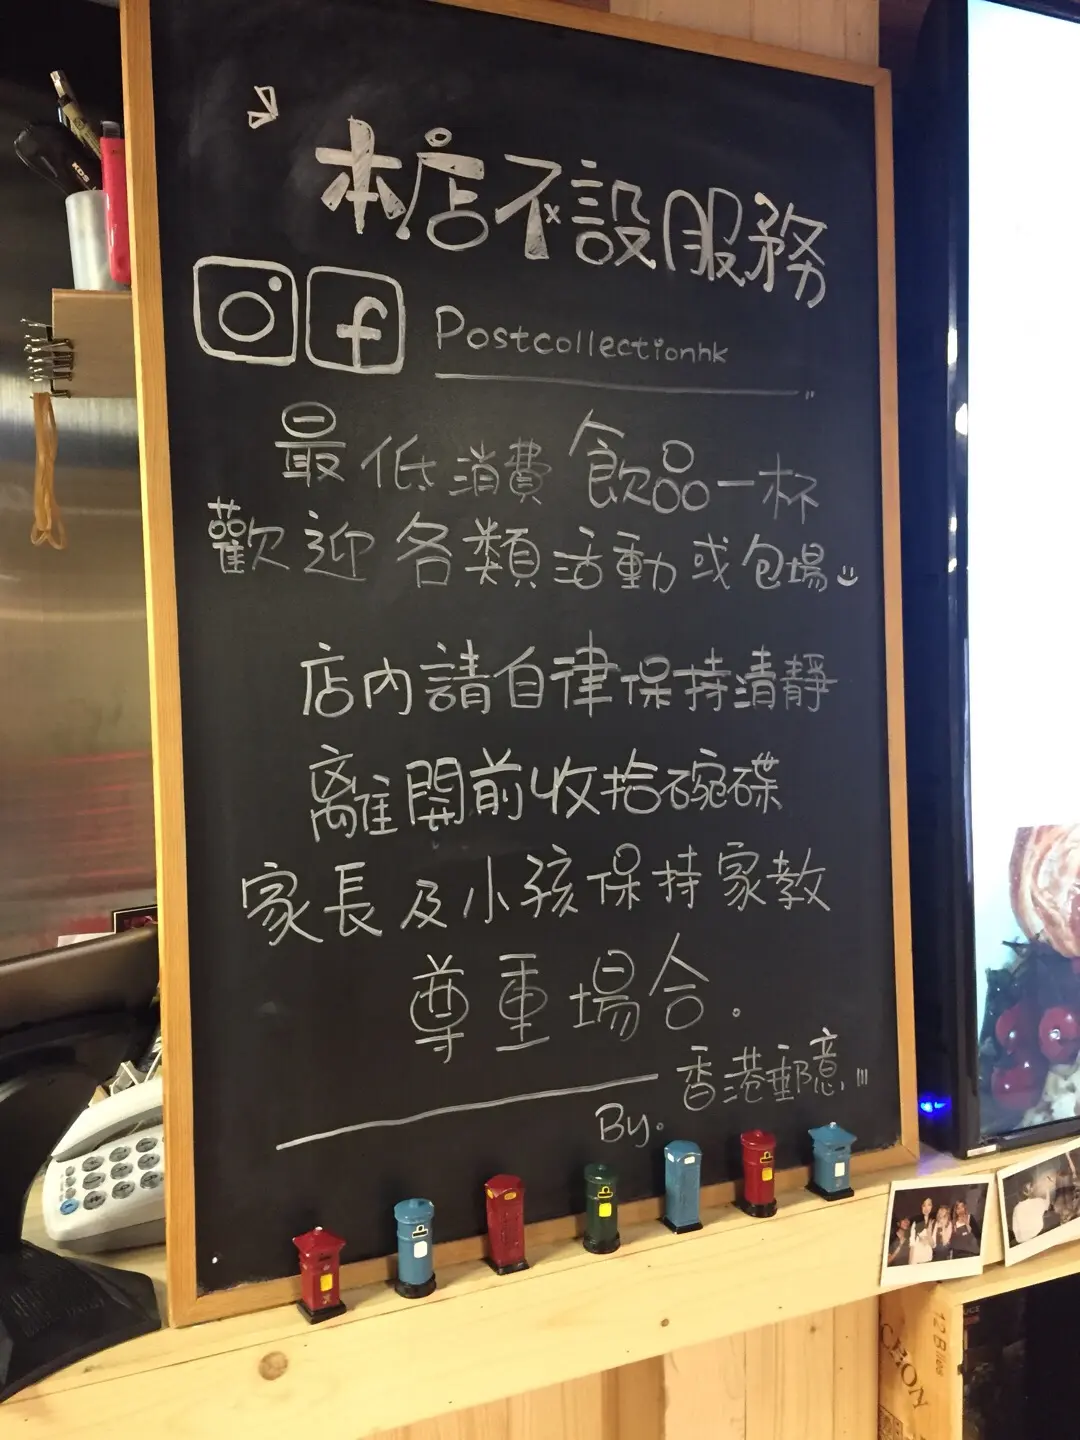 本店不設服務
Postcollectionhk
最低消費飲品一杯
歡迎各類活動或包場
店內請自律保持清靜
離開前收拾碗碟
家長及小孩保持家教
尊重場合.
By. 香港郵意
KDS
12 B